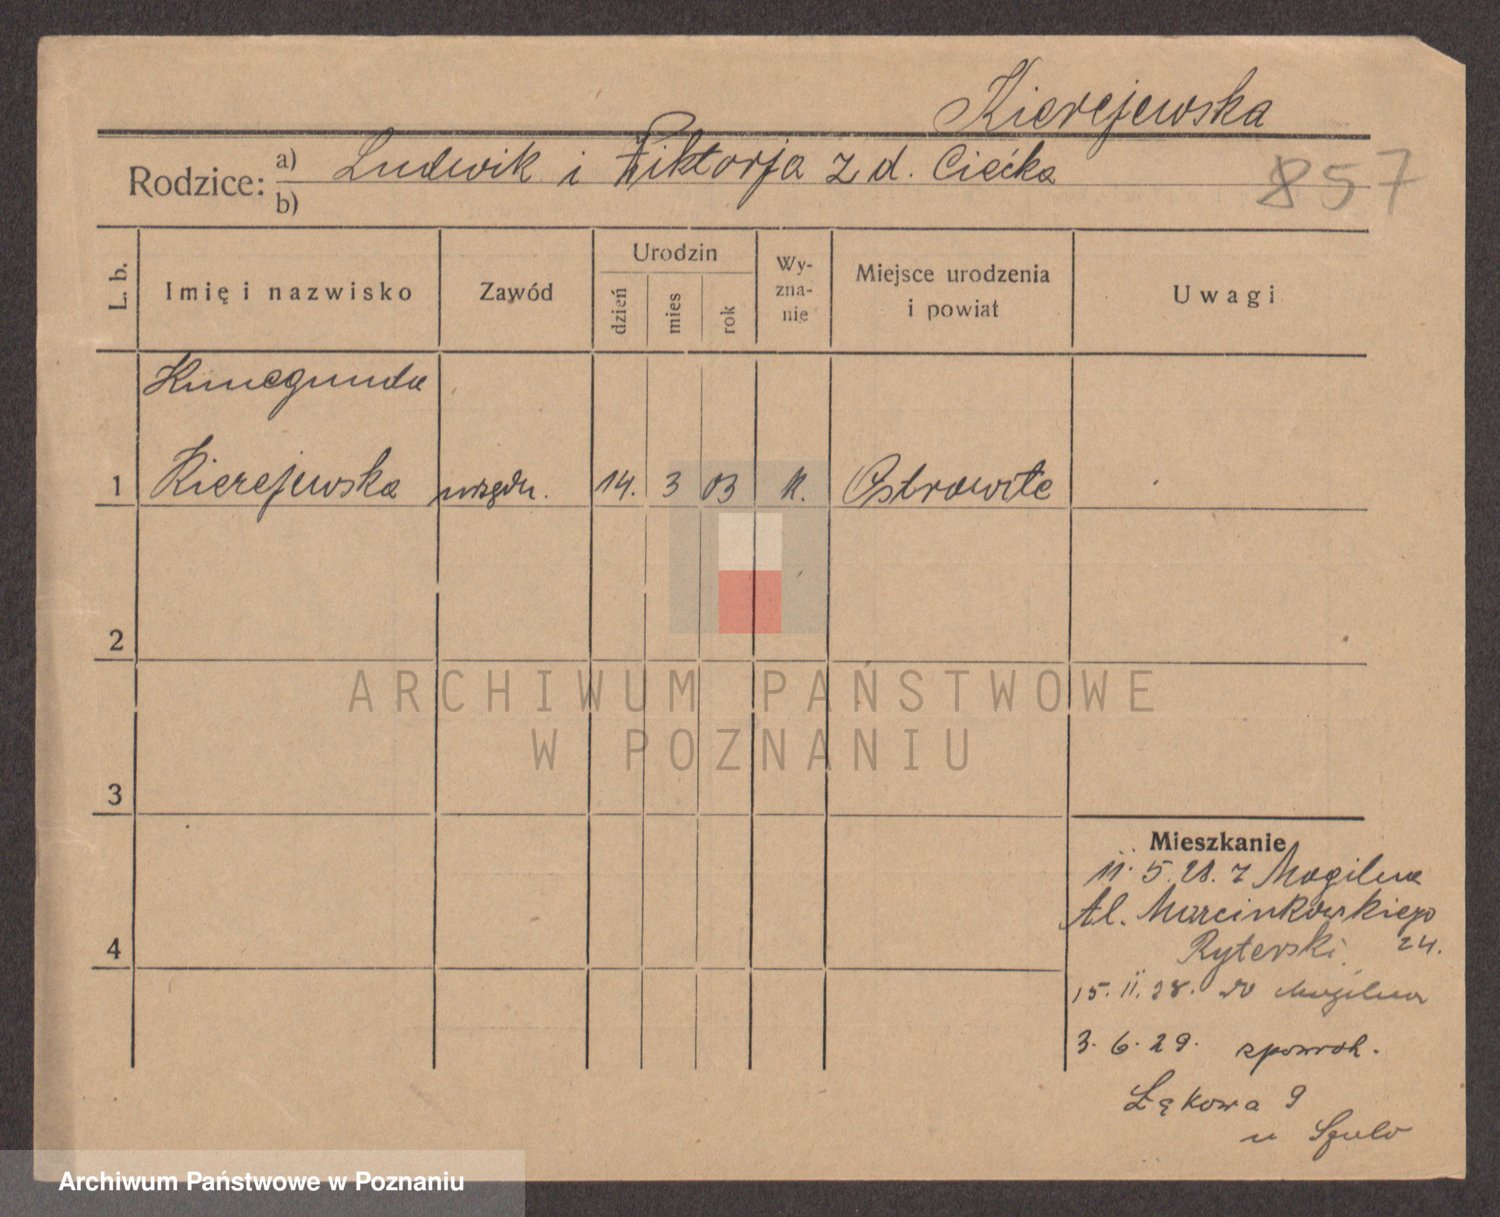 Kierejewska
Rodzice: a) Ludwik i Wiktorja z d. Ciećka
b)
857
L. b.
Imię i nazwisko
Zawód
Urodzin
dzień
mies
rok
Wy-
zna-
nie
Miejsce urodzenia
i powiat
Uwagi
Kunegunda
1 Kierejewska urzędn. 14. 3 03 k. Ostrowite
2
3
4
Mieszkanie
11. 5. 28. z Mogilna
Al. Marcinkowskiego
24.
Ryterski
15. II. 28. do Mogilna
3. 6. 29. zpowrot.
Łąkowa 9
u Szulc
ARCHIWUM PAŃSTWOWE
W POZNANIU
Archiwum Państwowe w Poznaniu